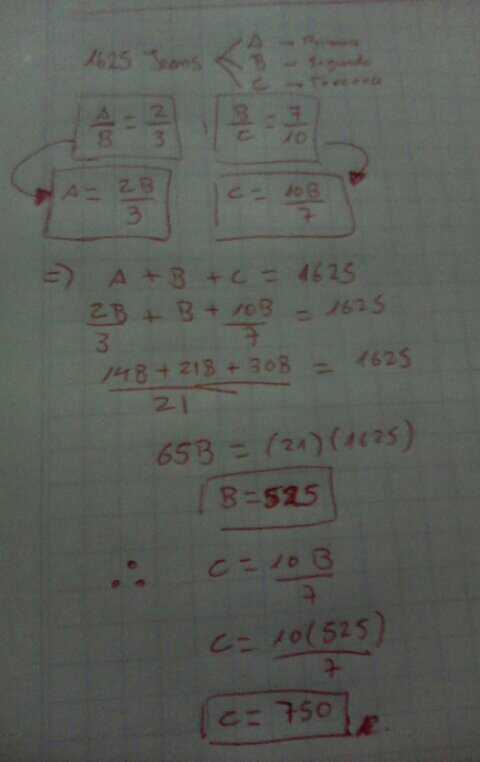 1625 Jeans
A → Primera
B → Segunda
C → Tercera
A/B = 2/3
B/C = 7/10
A = 2B/3
C = 10B/7
=> A + B + C = 1625
2B/3 + B + 10B/7 = 1625
14B + 21B + 30B / 21 = 1625
65B = (21)(1625)
B = 525
∴ C = 10B/7
C = 10(525)/7
C = 750